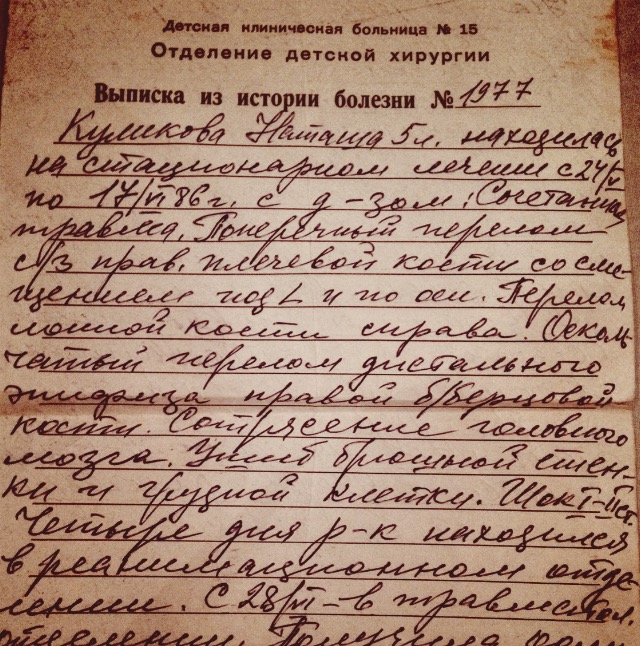 Детская клиническая больница № 15
Отделение детской хирургии
Выписка из истории болезни № 1977
Куликова Наташа 5 л. находилась
на стационарном лечении с 24/V
по 17/VI 86 г. с д-зом: Сочетанная
травма. Поперечный перелом
с/з прав. плечевой кости со сме-
щением под L и по оси. Перелом
лонной кости справа. Осколь-
чатый перелом дистального
эпифиза правой б/берцовой
кости. Сотрясение головного
мозга. Ушиб брюшной стен-
ки и грудной клетки. Шок I-II ст.
Четыре дня р-к находился
в реанимационном отде-
лении. С 28/VI - в травматол.
отделении. Получила